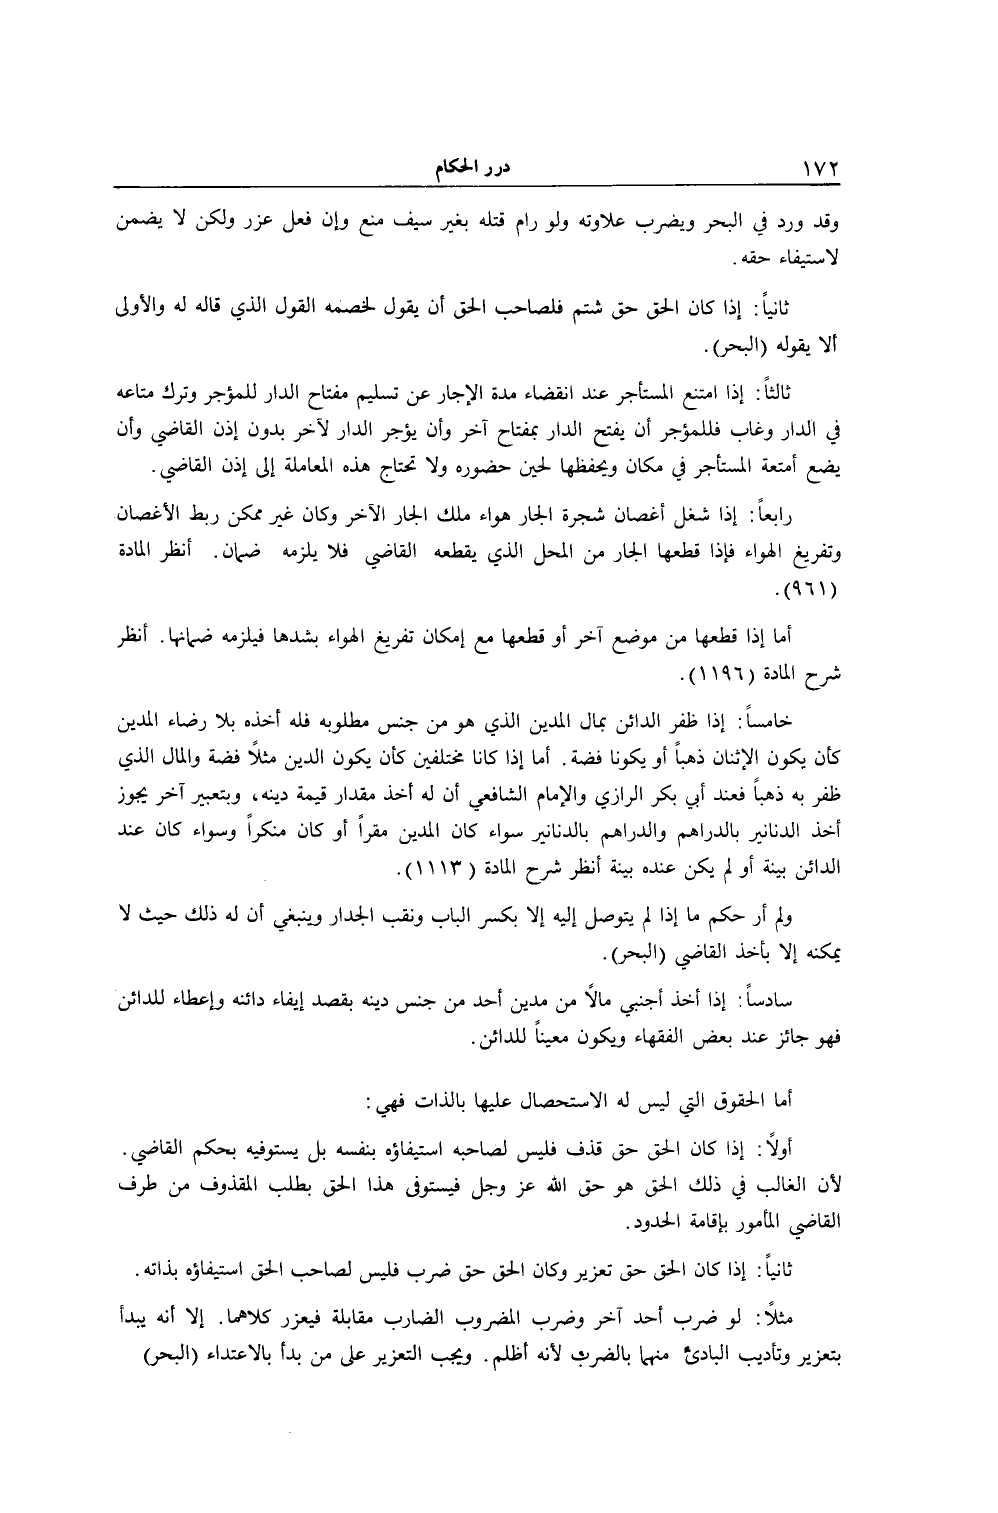 ١٧٢ درر الحكام
وقد ورد في البحر ويضرب علاوته ولو رام قتله بغير سيف منع وإن فعل عزر ولكن لا يضمن
لاستيفاء حقه.
ثانياً: إذا كان الحق حق شتم فلصاحب الحق أن يقول لخصمه القول الذي قاله له والأولى
ألا يقوله (البحر).
ثالثاً: إذا امتنع المستأجر عند انقضاء مدة الإجار عن تسليم مفتاح الدار للمؤجر وترك متاعه
في الدار وغاب فللمؤجر أن يفتح الدار بمفتاح آخر وأن يؤجر الدار لآخر بدون إذن القاضي وأن
يضع أمتعة المستأجر في مكان ويحفظها لحين حضوره ولا تحتاج هذه المعاملة إلى إذن القاضي.
رابعاً: إذا شغل أغصان شجرة الجار هواء ملك الجار الآخر وكان غير ممكن ربط الأغصان
وتفريغ الهواء فإذا قطعها الجار من المحل الذي يقطعه القاضي فلا يلزمه ضمان. أنظر المادة
(٩٦١).
أما إذا قطعها من موضع آخر أو قطعها مع إمكان تفريغ الهواء بشدها فيلزمه ضمانها. أنظر
شرح المادة (١١٩٦).
خامساً: إذا ظفر الدائن بمال المدين الذي هو من جنس مطلوبه فله أخذه بلا رضاء المدين
كأن يكون الإثنان ذهباً أو يكونا فضة. أما إذا كانا مختلفين كأن يكون الدين مثلاً فضة والمال الذي
ظفر به ذهباً فعند أبي بكر الرازي والإمام الشافعي أن له أخذ مقدار قيمة دينه، وبتعبير آخر يجوز
أخذ الدنانير بالدراهم والدراهم بالدنانير سواء كان المدين مقراً أو كان منكراً وسواء كان عند
الدائن بينة أو لم يكن عنده بينة أنظر شرح المادة (١١١٣).
ولم أر حكم ما إذا لم يتوصل إليه إلا بكسر الباب ونقب الجدار وينبغي أن له ذلك حيث لا
يمكنه إلا بأخذ القاضي (البحر).
سادساً: إذا أخذ أجنبي مالاً من مدين أحد من جنس دينه بقصد إيفاء دائنه وإعطاء للدائن
فهو جائز عند بعض الفقهاء ويكون معيناً للدائن.
أما الحقوق التي ليس له الاستحصال عليها بالذات فهي:
أولاً: إذا كان الحق حق قذف فليس لصاحبه استيفاؤه بنفسه بل يستوفيه بحكم القاضي.
لأن الغالب في ذلك الحق هو حق الله عز وجل فيستوفى هذا الحق بطلب المقذوف من طرف
القاضي المأمور بإقامة الحدود.
ثانياً: إذا كان الحق حق تعزير وكان الحق حق ضرب فليس لصاحب الحق استيفاؤه بذاته.
مثلاً: لو ضرب أحد آخر وضرب المضروب الضارب مقابلة فيعزر كلاهما. إلا أنه يبدأ
بتعزير وتأديب البادئ منهما بالضرب لأنه أظلم. ويجب التعزير على من بدأ بالاعتداء (البحر)